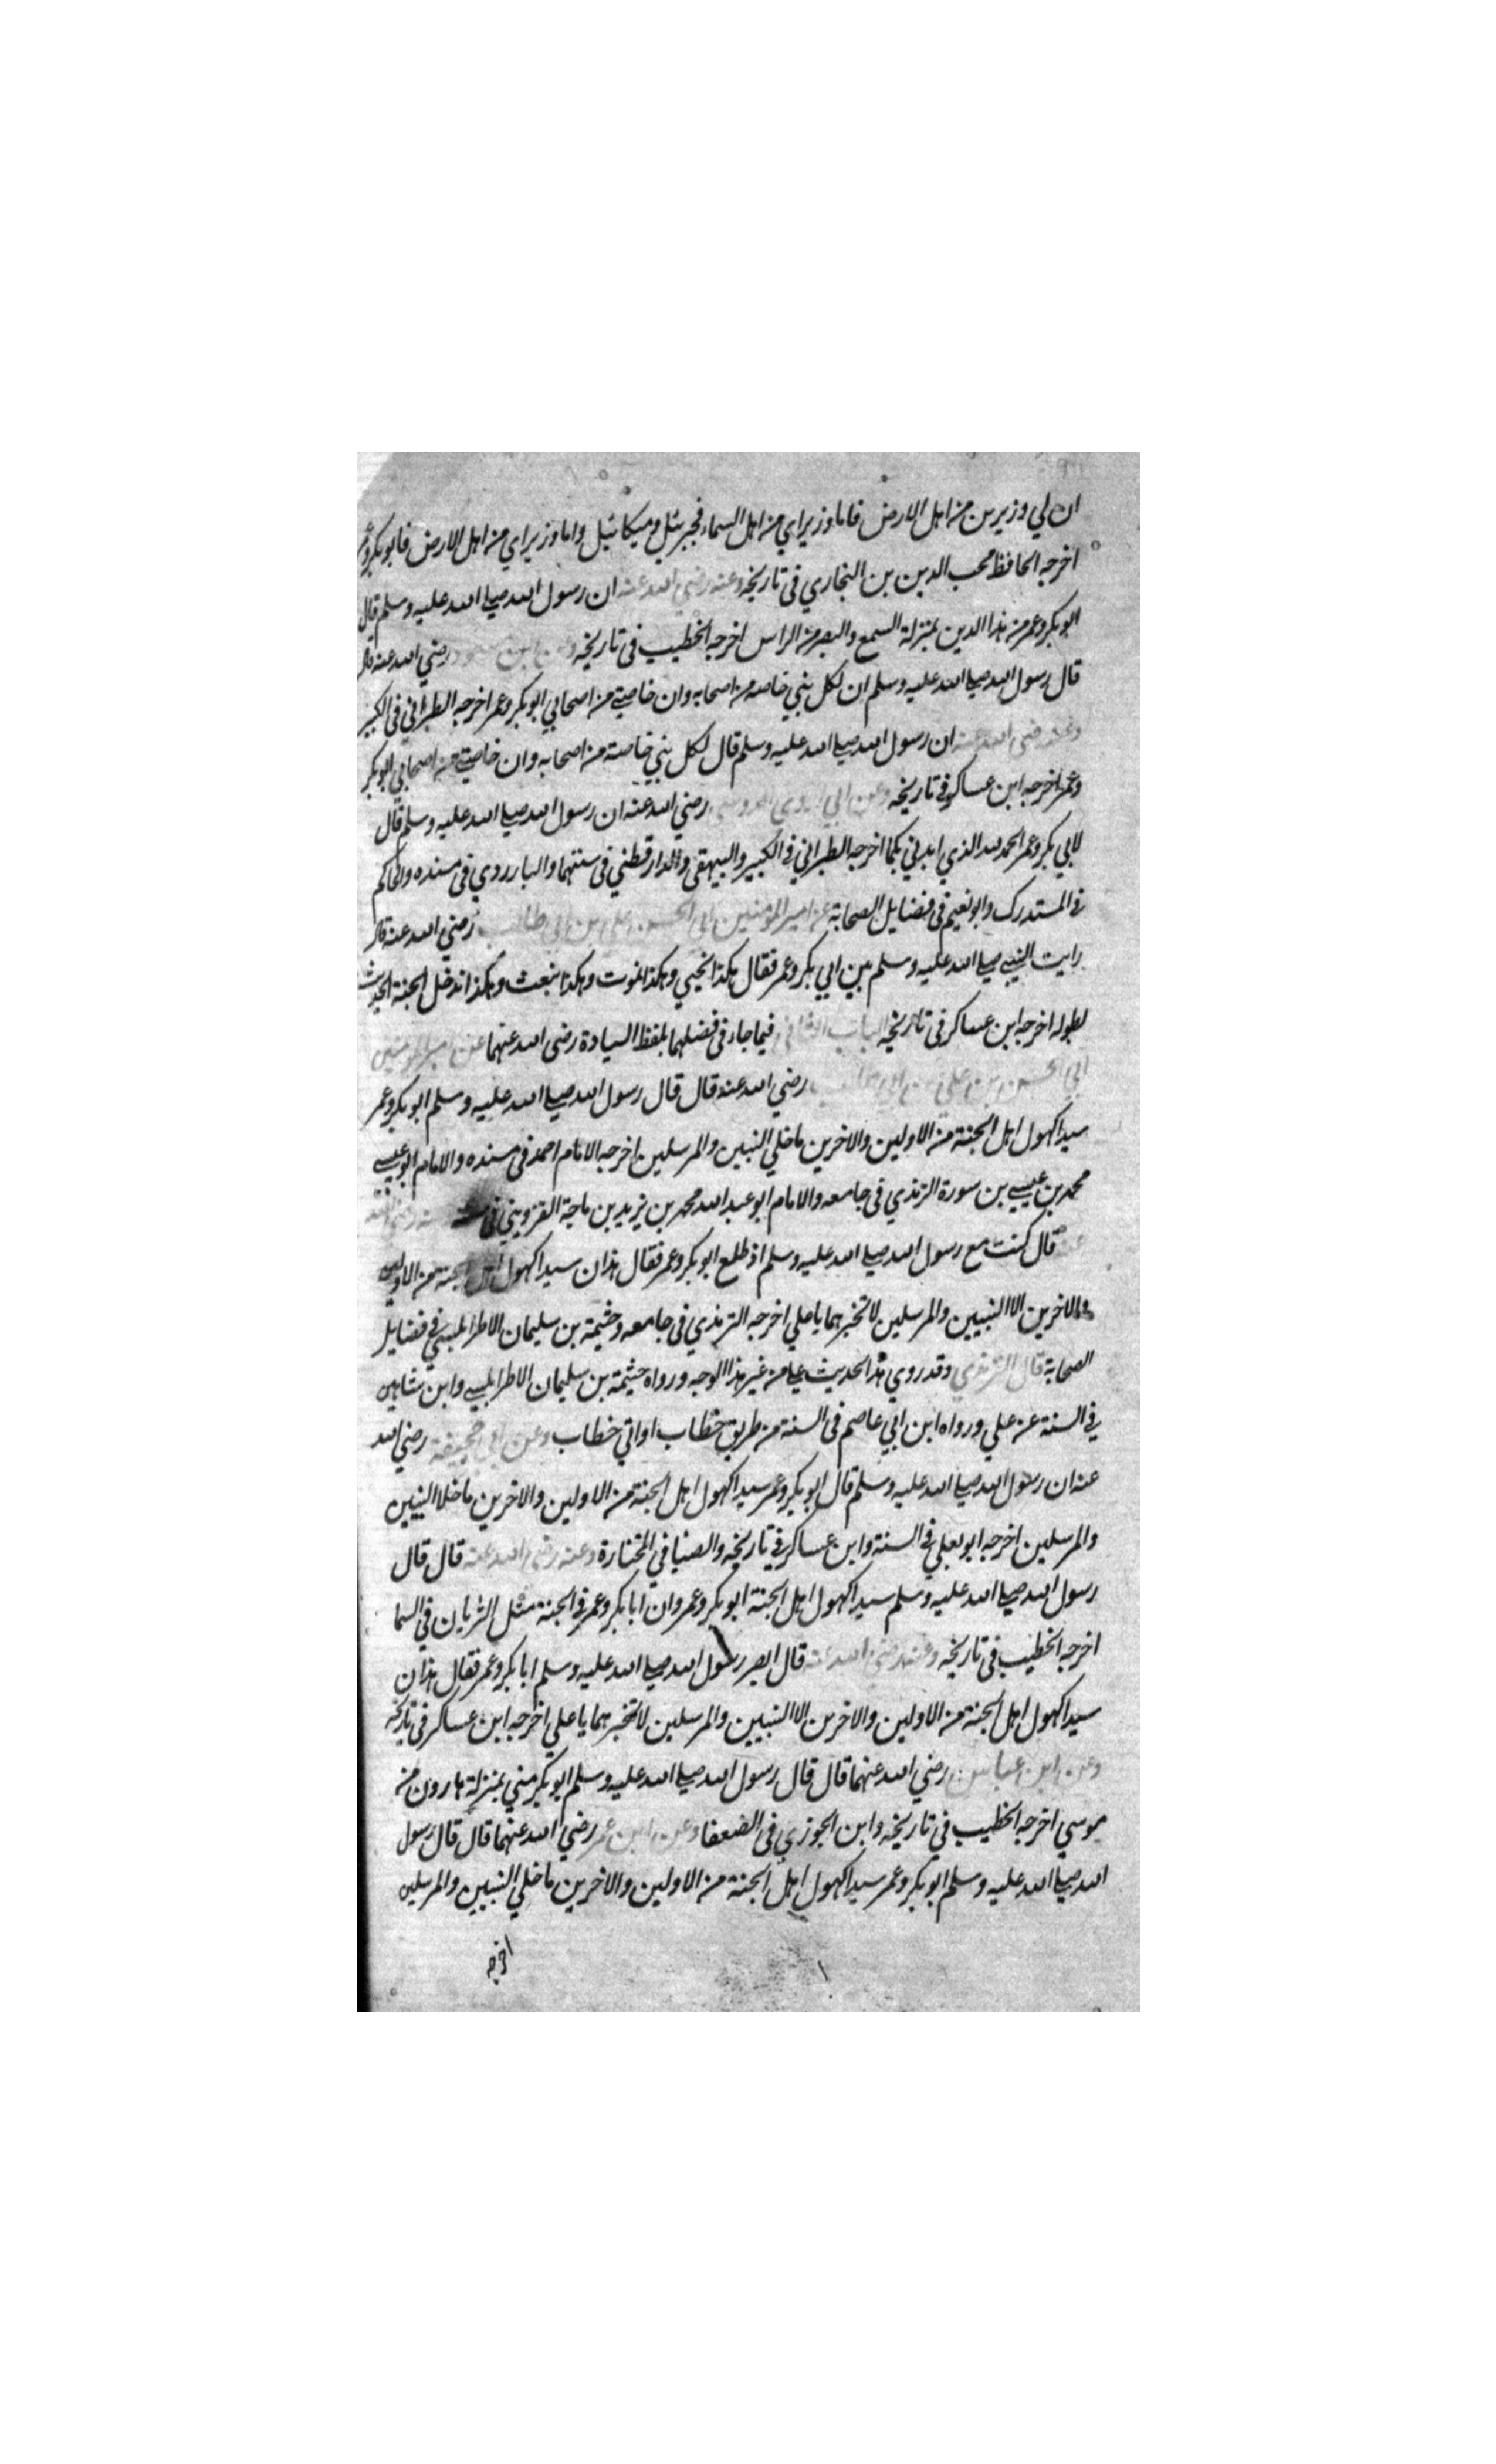 ان لي وزيرين من اهل الارض فاما وزيراي من اهل السماء فجبرئيل وميكائيل واما وزيراي من اهل الارض فابو بكر وعمر
اخرجه الحافظ محب الدين بن النجاري فى تاريخه وعنه رضي الله عنه ان رسول الله صلى الله عليه وسلم قال
ابو بكر وعمر من هذا الدين بمنزلة السمع والبصر من الراس اخرجه الخطيب فى تاريخه وعن ابن مسعود رضي الله عنه قال
قال رسول الله صلى الله عليه وسلم ان لكل نبي خاصه من اصحابه وان خاصتي من اصحابي ابو بكر وعمر اخرجه الطبراني فى الكبير
وعنه رضي الله عنه ان رسول الله صلى الله عليه وسلم قال لكل نبي خاصته من اصحابه وان خاصتي من اصحابي ابو بكر
وعمر اخرجه ابن عساكر في تاريخه وعن ابي اروى الدوسي رضي الله عنه ان رسول الله صلى الله عليه وسلم قال
لابي بكر وعمر الحمد لله الذي ايدني بكما اخرجه الطبراني في الكبير والبيهقى والدارقطني فى سننهما والباوردي فى مسنده والحاكم
في المستدرك وابو نعيم فى فضايل الصحابة عن امير المؤمنين ابي الحسن علي بن ابي طالب رضي الله عنه قال
رايت النبي صلى الله عليه وسلم بين ابي بكر وعمر فقال هكذا نحيي وهكذا نموت وهكذا نبعث وهكذا ندخل الجنة الحديث
بطوله اخرجه ابن عساكر فى تاريخه الباب الثاني فيما جاء فى فضلهما بلفظ السيادة رضى الله عنهما عن امير المؤمنين
ابي الحسن بن علي بن ابي طالب رضي الله عنه قال قال رسول الله صلى الله عليه وسلم ابو بكر وعمر
سيدا كهول اهل الجنة من الاولين والاخرين ماخلي النبيين والمرسلين اخرجه الامام احمد فى مسنده والامام ابو عيسى
محمد بن عيسي بن سورة الترمذي فى جامعه والامام ابو عبد الله محمد بن يزيد بن ماجة القزويني فى سننه وعنه رضي الله
عنه قال كنت مع رسول الله صلى الله عليه وسلم اذ طلع ابو بكر وعمر فقال هذان سيدا كهول اهل الجنة من الاولين
والاخرين الا النبيين والمرسلين لا تخبرهما يا علي اخرجه الترمذي فى جامعه وخيثمة بن سليمان الاطرابلسي في فضايل
الصحابة قال الترمذي وقد روي هذا الحديث علي من غير هذا الوجه ورواه خيثمة بن سليمان الاطرابلسي وابن شاهين
في السنة عن علي ورواه ابن ابي عاصم فى السنة من طريق خطاب او ابي خطاب وعن ابي جحيفة رضي الله
عنه ان رسول الله صلى الله عليه وسلم قال ابو بكر وعمر سيدا كهول اهل الجنة من الاولين والاخرين ماخلا النبيين
والمرسلين اخرجه ابو يعلي في السنة وابن عساكر في تاريخه والضيا في المختارة وعنه رضي الله عنه قال قال
رسول الله صلى الله عليه وسلم سيدا كهول اهل الجنة ابو بكر وعمر وان ابا بكر وعمر في الجنة مثل الثريان في السما
اخرجه الخطيب فى تاريخه وعنه رضي الله عنه قال ابصر رسول الله صلى الله عليه وسلم ابا بكر وعمر فقال هذان
سيدا كهول اهل الجنة من الاولين والاخرين الا النبيين والمرسلين لا تخبرهما يا علي اخرجه ابن عساكر فى تاريخه
وعن ابن عباس رضي الله عنهما قال قال رسول الله صلى الله عليه وسلم ابو بكر مني بمنزلة هارون من
موسي اخرجه الخطيب في تاريخه وابن الجوزي فى الضعفا وعن ابن عمر رضي الله عنهما قال قال رسول
الله صلى الله عليه وسلم ابو بكر وعمر سيدا كهول اهل الجنة من الاولين والاخرين ماخلي النبيين والمرسلين
اخرجه